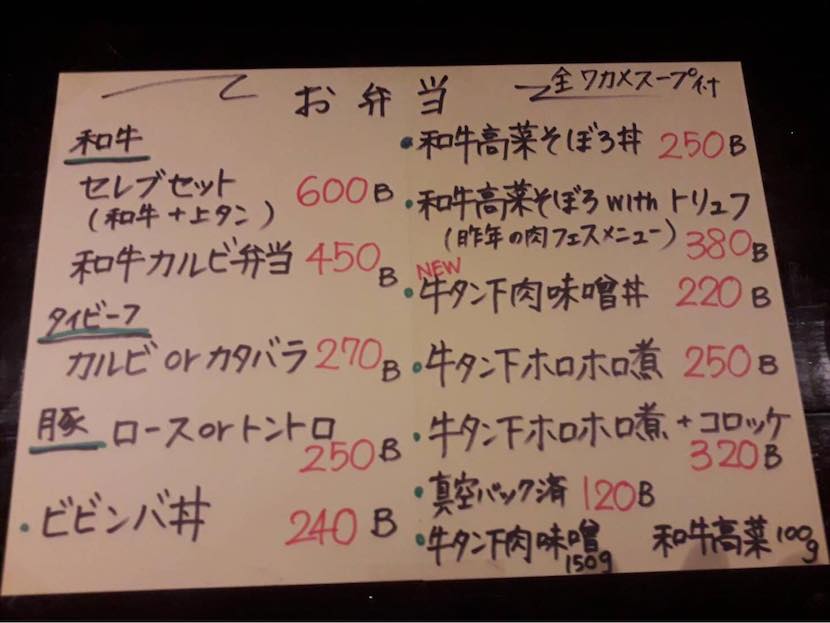 お弁当
全ワカメスープ付
和牛
セレブセット 600B
(和牛+上タン)
和牛カルビ弁当 450B
タイビーフ
カルビorカタバラ 270B
豚 ロースorトントロ
250B
・ビビンバ丼 240B
・和牛高菜そぼろ丼 250B
・和牛高菜そぼろwithトリュフ
(昨年の肉フェスメニュー) 380B
NEW
・牛タン下肉味噌丼 220B
・牛タン下ホロホロ煮 250B
・牛タン下ホロホロ煮+コロッケ
320B
・真空パック済 120B
・牛タン下肉味噌 和牛高菜100g
150g